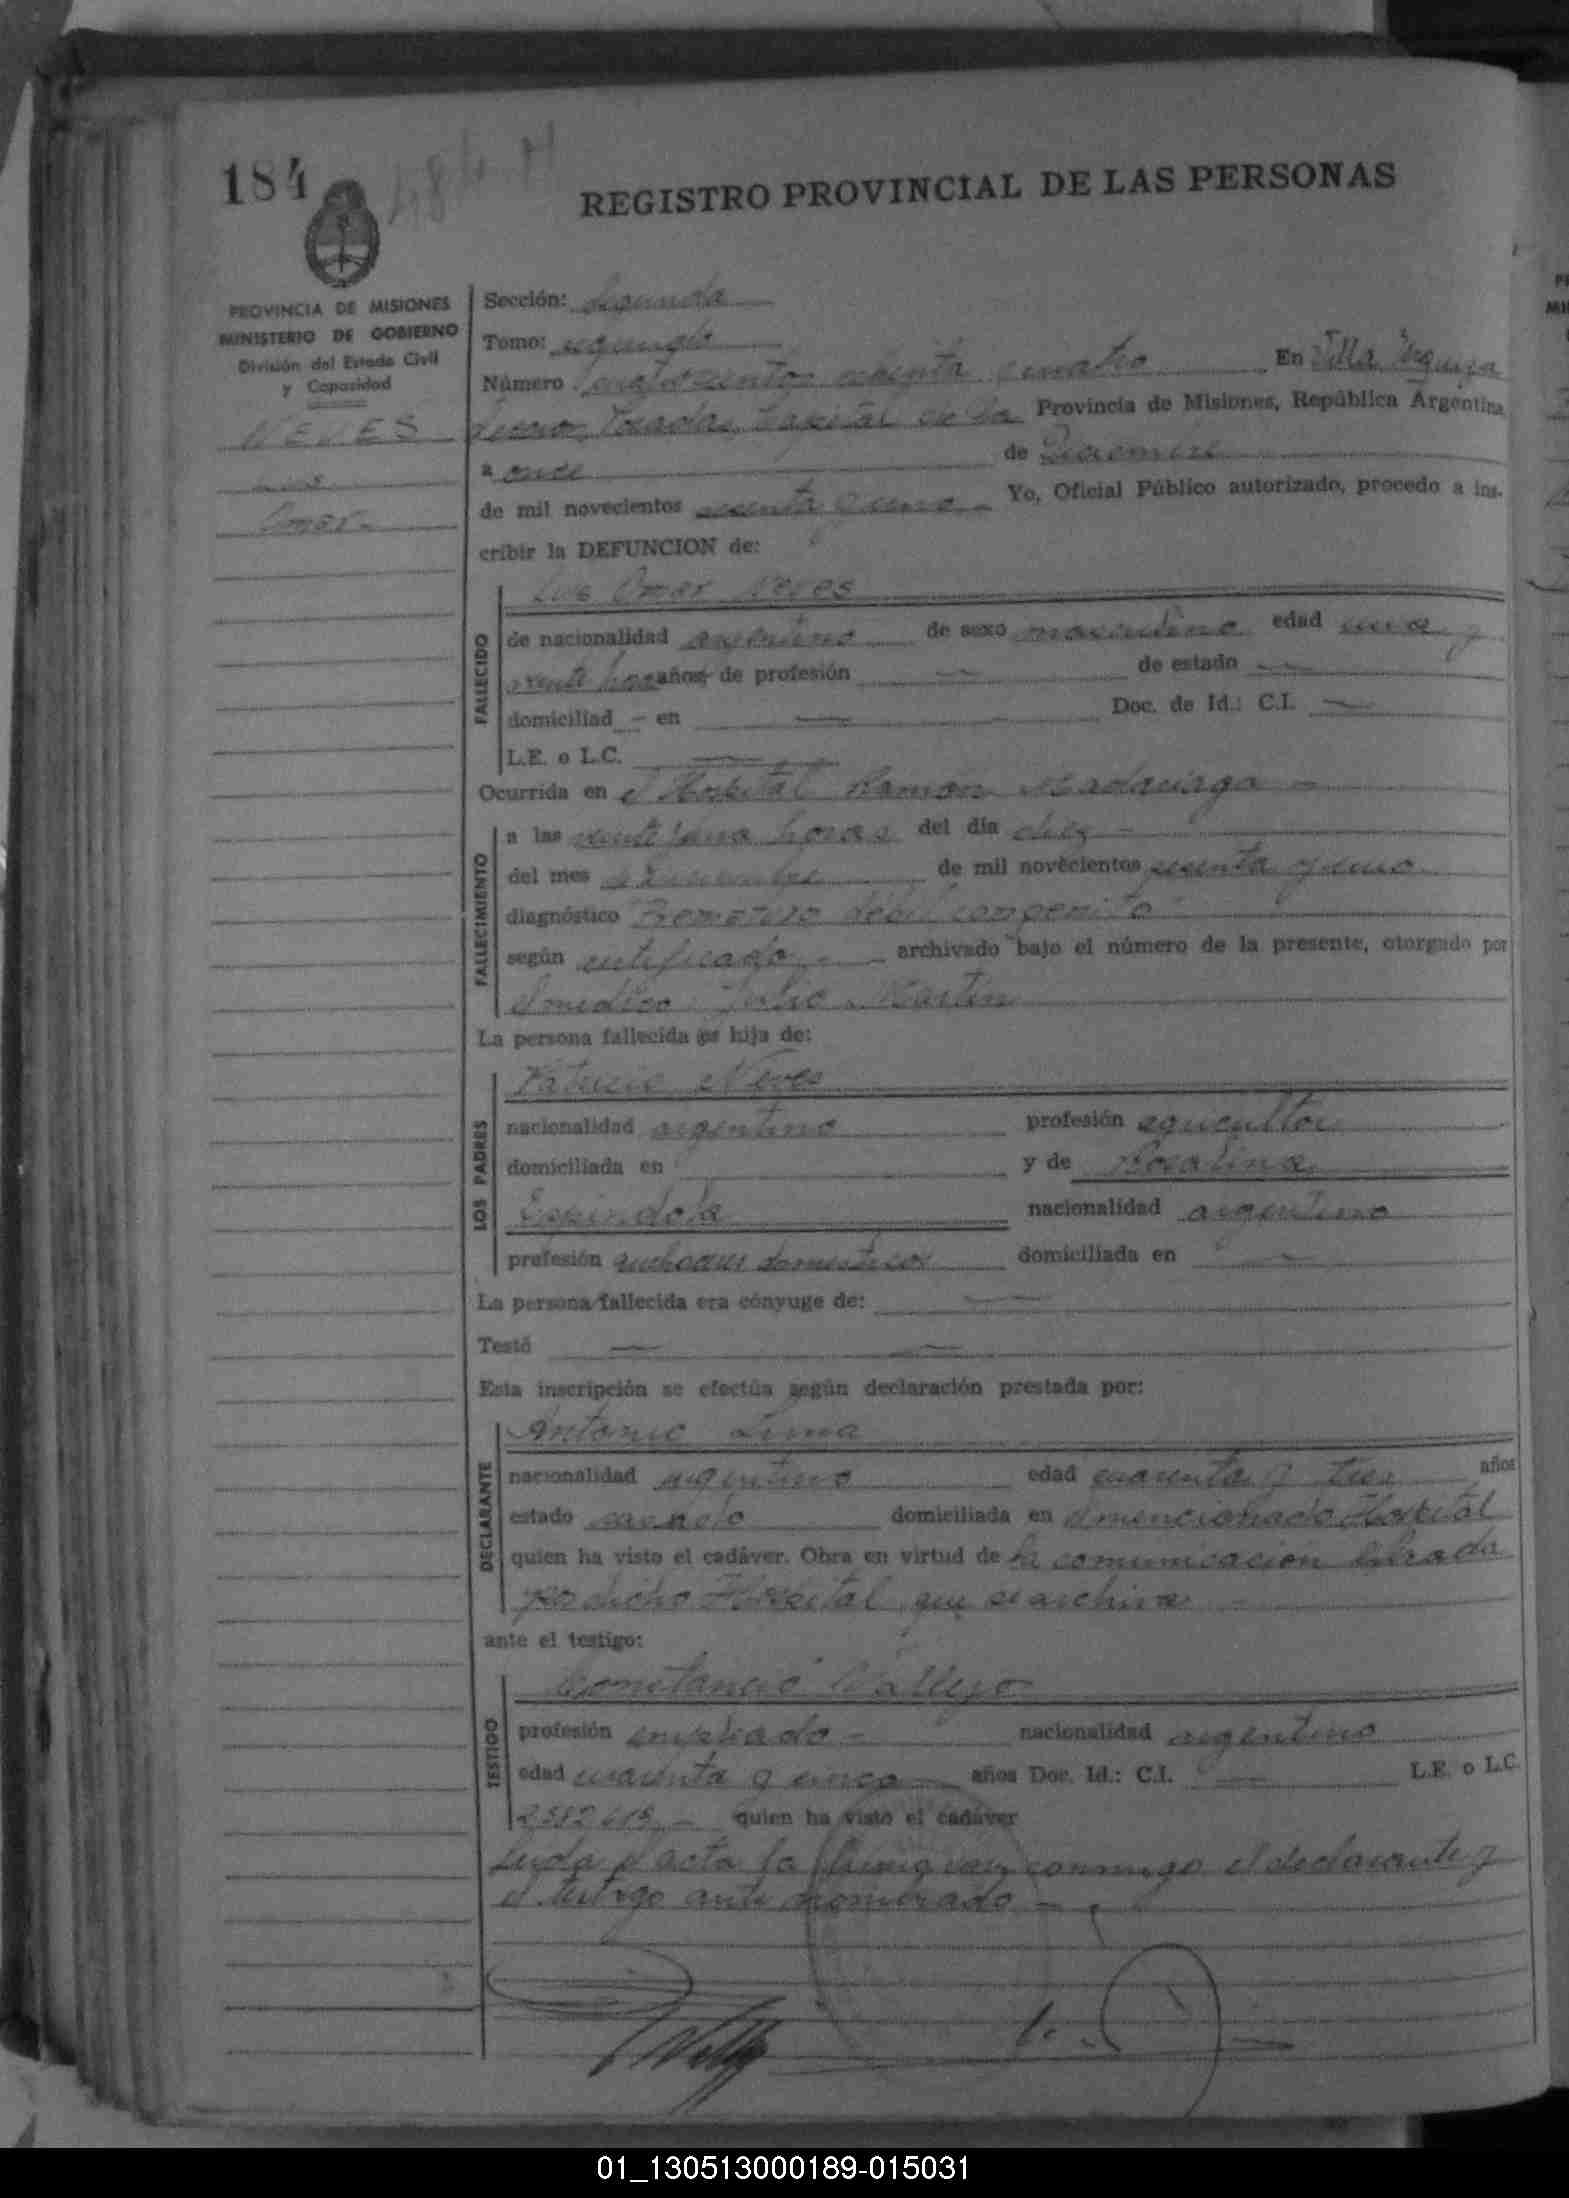 184
484 M
REGISTRO PROVINCIAL DE LAS PERSONAS
PROVINCIA DE MISIONES
MINISTERIO DE GOBIERNO
División del Estado Civil
y Capacidad
NEVES
Luis
Omar -
Sección: Segunda
Tomo: segundo
Número cuatrocientos ochenta y cuatro En Villa Urquiza
Posadas, Capital de la Provincia de Misiones, República Argentina,
a once de Diciembre
de mil novecientos sesenta y uno - Yo, Oficial Público autorizado, procedo a ins-
cribir la DEFUNCION de:
FALLECIDO
Luis Omar Neves
de nacionalidad argentino de sexo masculino edad una y
veinte horas años de profesión — de estado —
domiciliad — en — Doc. de Id.: C.I. —
L.E. o L.C. —
Ocurrida en el Hospital Ramón Madariaga -
FALLECIMIENTO
a las veintiuna horas del día diez -
del mes de Diciembre de mil novecientos sesenta y uno
diagnóstico "Prematuro debil congenito"
según certificado - archivado bajo el número de la presente, otorgado por
el médico Julio Martin
La persona fallecida es hija de:
LOS PADRES
Patricio Neves
nacionalidad argentino profesión agricultor
domiciliada en y de Rosalina
Espindola nacionalidad argentina
profesión quehaceres domesticos domiciliada en —
La persona fallecida era cónyuge de: —
Testó — —
Esta inscripción se efectúa según declaración prestada por:
DECLARANTE
Antonio Lima
nacionalidad argentino edad cuarenta y tres años
estado casado domiciliada en el mencionado Hospital
quien ha visto el cadáver. Obra en virtud de la comunicación librada
por dicho Hospital que se archiva -
ante el testigo:
TESTIGO
Constancio Vallejo
profesión empleado - nacionalidad argentino
edad cuarenta y cinco - años Doc. Id.: C.I. — L.E. o L.C.
quien ha visto el cadáver
Leida el acta la firman conmigo el declarante y
el testigo ante nombrado -
01_130513000189-015031